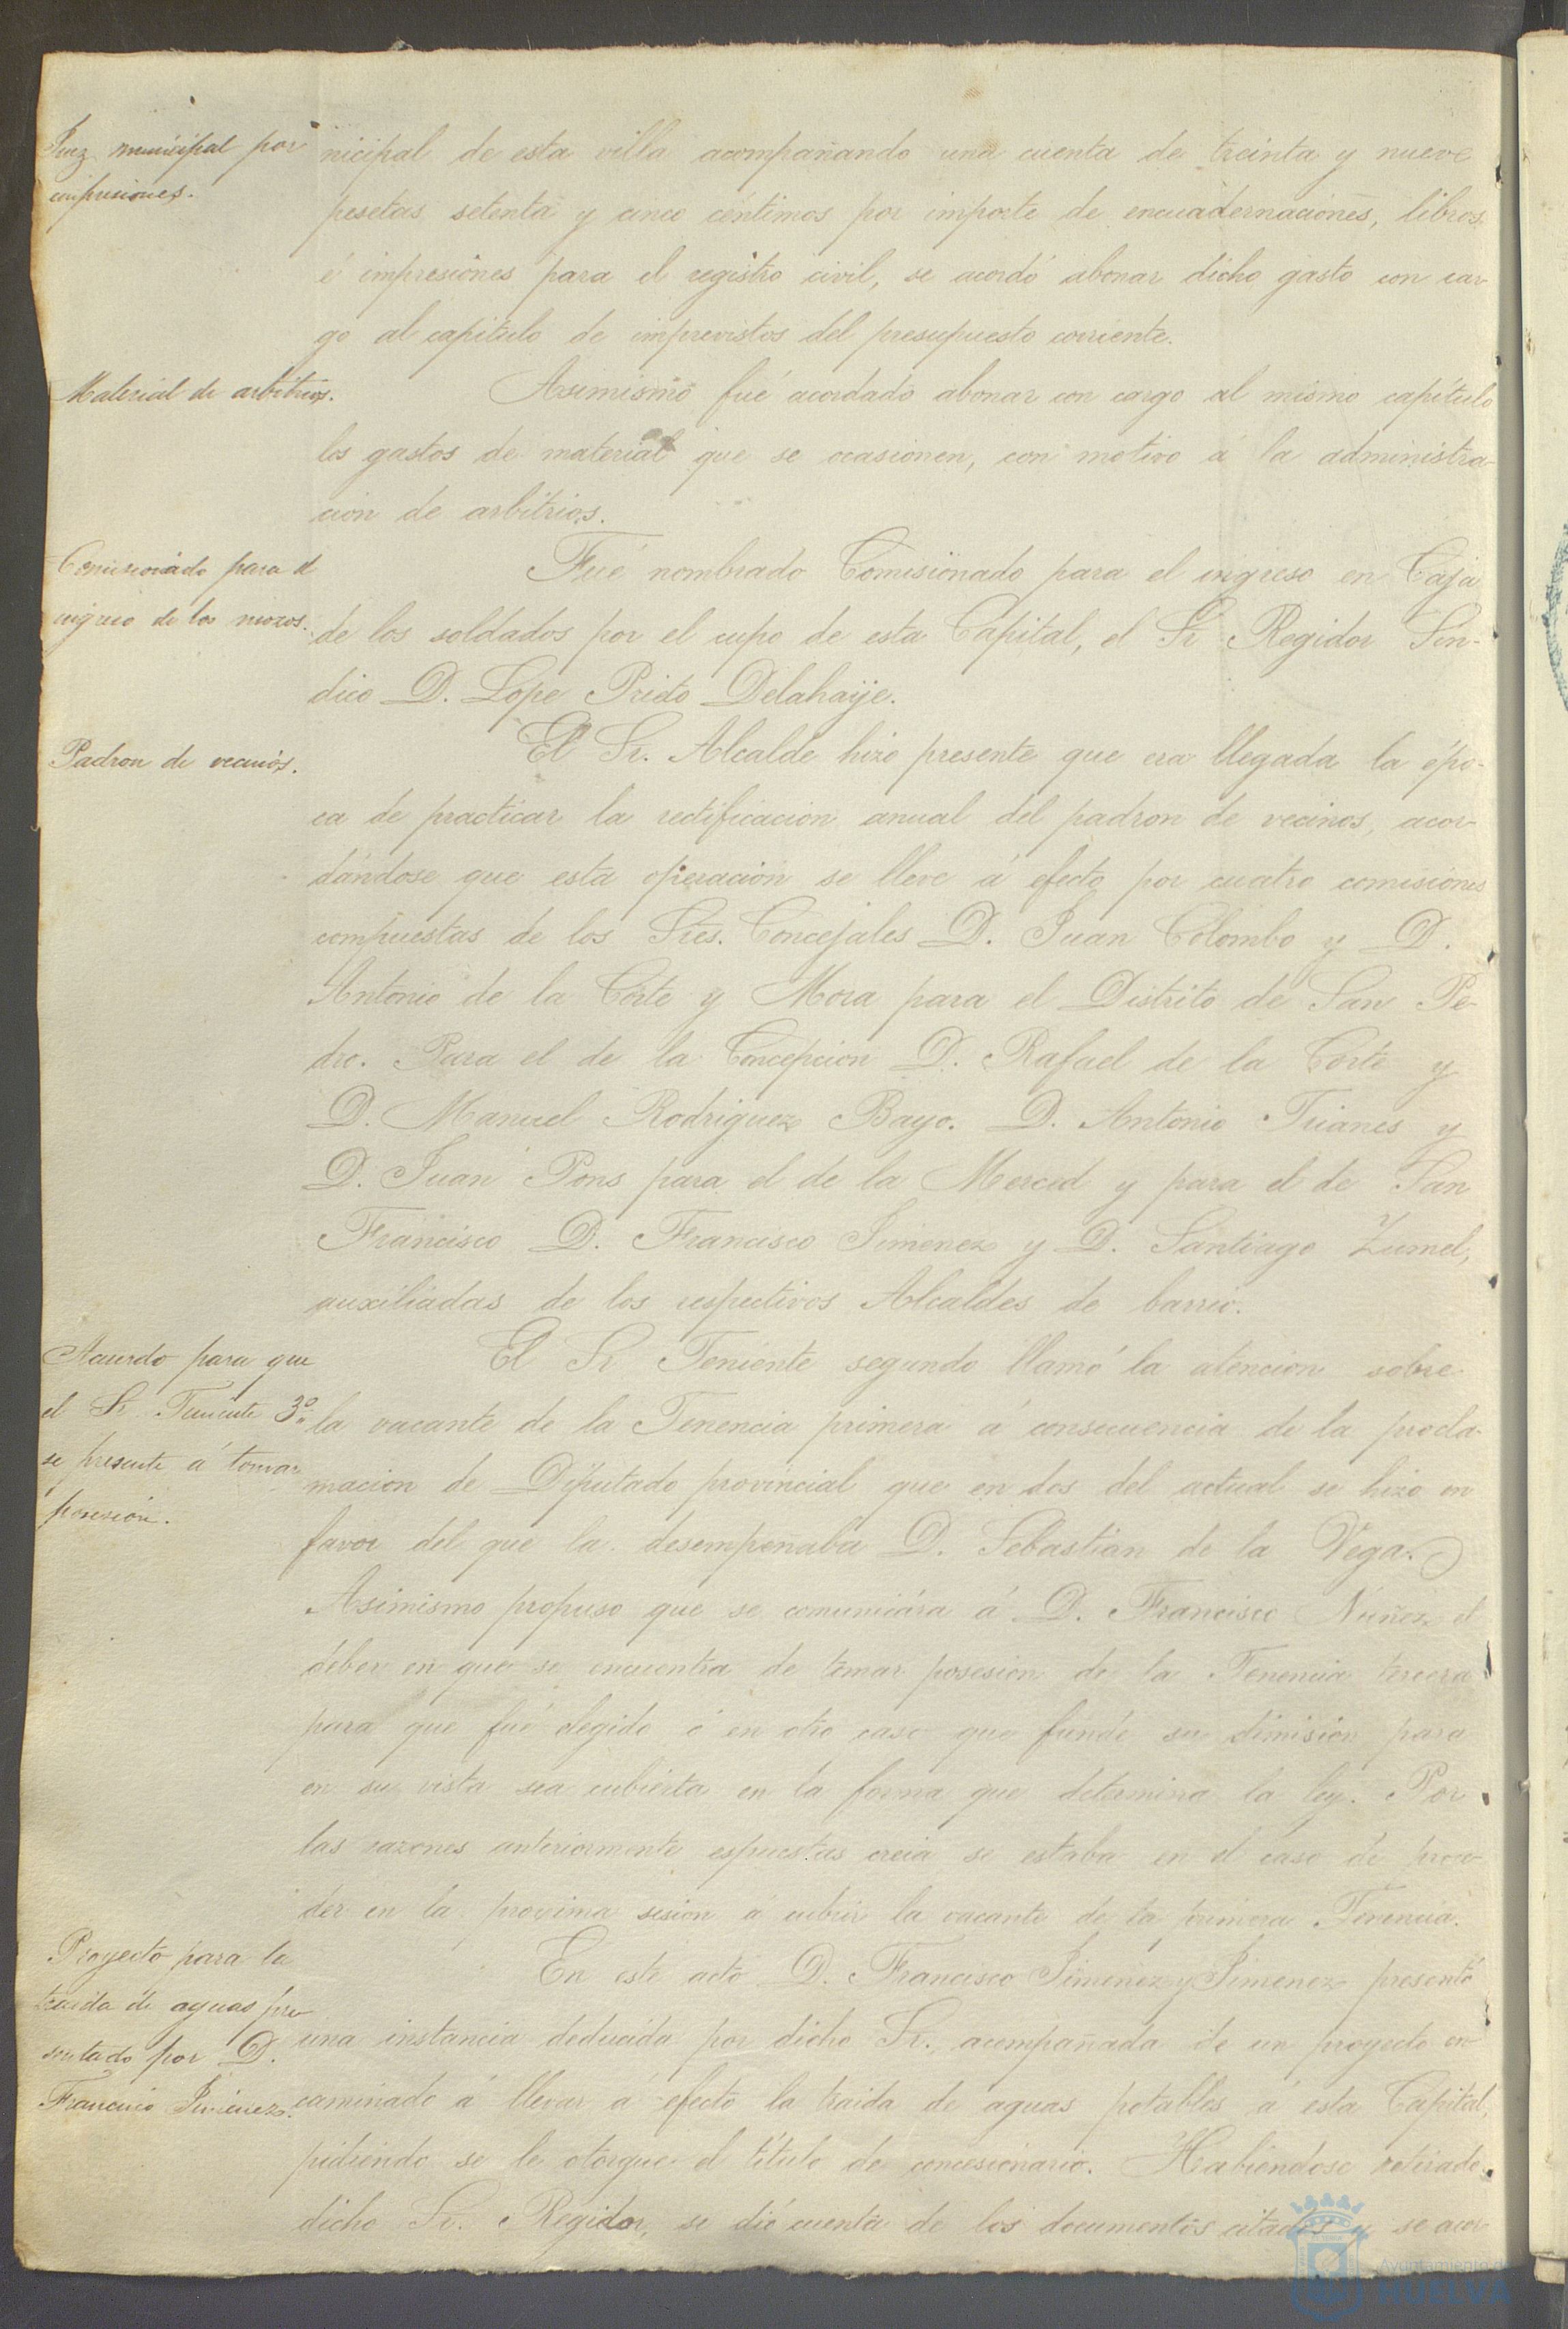 Juez municipal por
impresiones.
nicipal de esta villa acompañando una cuenta de treinta y nueve
pesetas setenta y cinco céntimos por importe de encuadernaciones, libros
é impresiones para el registro civil, se acordó abonar dicho gasto con car
go al capitulo de imprevistos del presupuesto corriente.
Material de arbitrios.
Asimismo fué acordado abonar con cargo al mismo capítulo
los gastos de material que se ocasionen, con motivo á la administra-
cion de arbitrios.
Comisionado para el
ingreso de los mozos.
Fué nombrado Comisionado para el ingreso en Caja
de los soldados por el cupo de esta Capital, el Sr Regidor Sin-
dico D. Lope Prieto Delahaije.
Padron de vecinos.
El Sr. Alcalde hizo presente que era llegada la épo-
ca de practicar la rectificacion anual del padron de vecinos, acor-
dándose que esta operacion se lleve á efecto por cuatro comisiones
compuestas de los Sres. Concejales D. Juan Colombo y D.
Antonio de la Corte y Mora para el Distrito de San Pe-
dro. Para el de la Concepcion D. Rafael de la Corte y
D. Manuel Rodriguez Bayo. D. Antonio Trianes y
D. Juan Pons para el de la Merced y para el de San
Francisco D. Francisco Jimenez y D. Santiago Zumel,
auxiliadas de los respectivos Alcaldes de barrio.
Acuerdo para que
el Sr. Teniente 3º
se presente á tomar
posesion.
El Sr Teniente segundo llamó la atencion sobre
la vacante de la Tenencia primera á consecuencia de la procla-
macion de Diputado provincial que en dos del actual se hizo en
favor del que la desempeñaba D. Sebastian de la Vega.
Asimismo propuso que se comunicára á D. Francisco Nuñez el
deber en que se encuentra de tomar posesion de la Tenencia tercera
para que fué elegido ó en otro caso que funde su dimision para
en su vista sea cubierta en la forma que determina la ley. Por
las razones anteriormente espuestas creia se estaba en el caso de proce-
der en la procima sesion á cubrir la vacante de la primera Tenencia.
Proyecto para la
traida de aguas pre
sentado por D.
Francisco Jimenez.
En este acto D. Francisco Jimenez y Jimenez presentó
una instancia deducida por dicho Sr., acompañada de un proyecto en
caminado á llevar á efecto la traida de aguas potables á esta Capital,
pidiendo se le otorgue el título de concesionario. Habiéndose retirado
dicho Sr. Regidor, se dió cuenta de los documentos citados y se acor
Ayuntamiento de
HUELVA